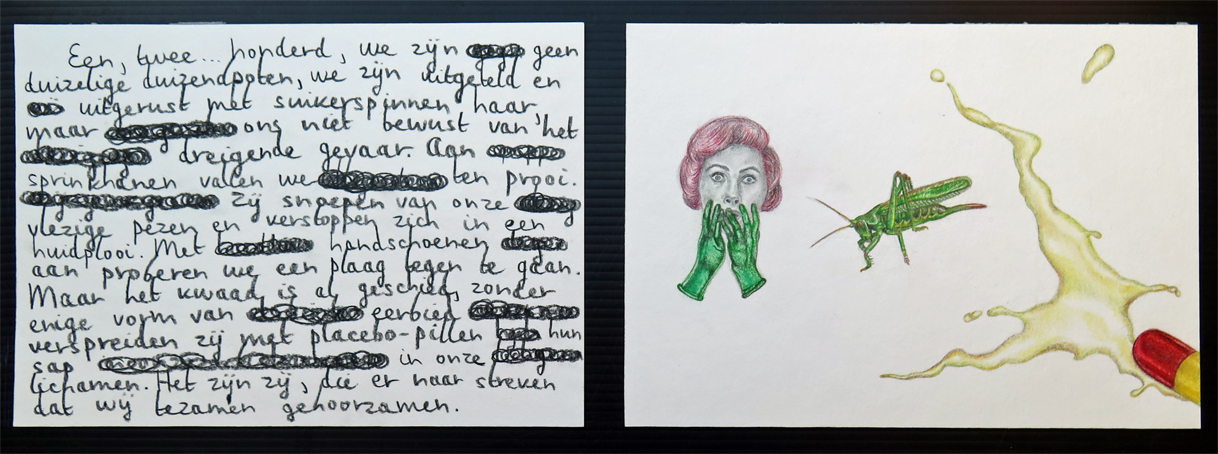 Een, twee... honderd, we zijn geen
duizelige duizendpoten, we zijn uitgeteld en
uitgerust met suikerspinnen haar,
maar ons niet bewust van het
dreigende gevaar. Aan
sprinkhanen vallen we ten prooi.
Zij snoepen van onze
vlezige pezen en verstoppen zich in een
huidplooi. Met handschoenen
aan proberen we een plaag tegen te gaan.
Maar het kwaad is al geschied, zonder
enige vorm van eerbied
verspreiden zij met placebo-pillen hun
sap in onze
lichamen. Het zijn zij, die er naar streven
dat wij tezamen gehoorzamen.